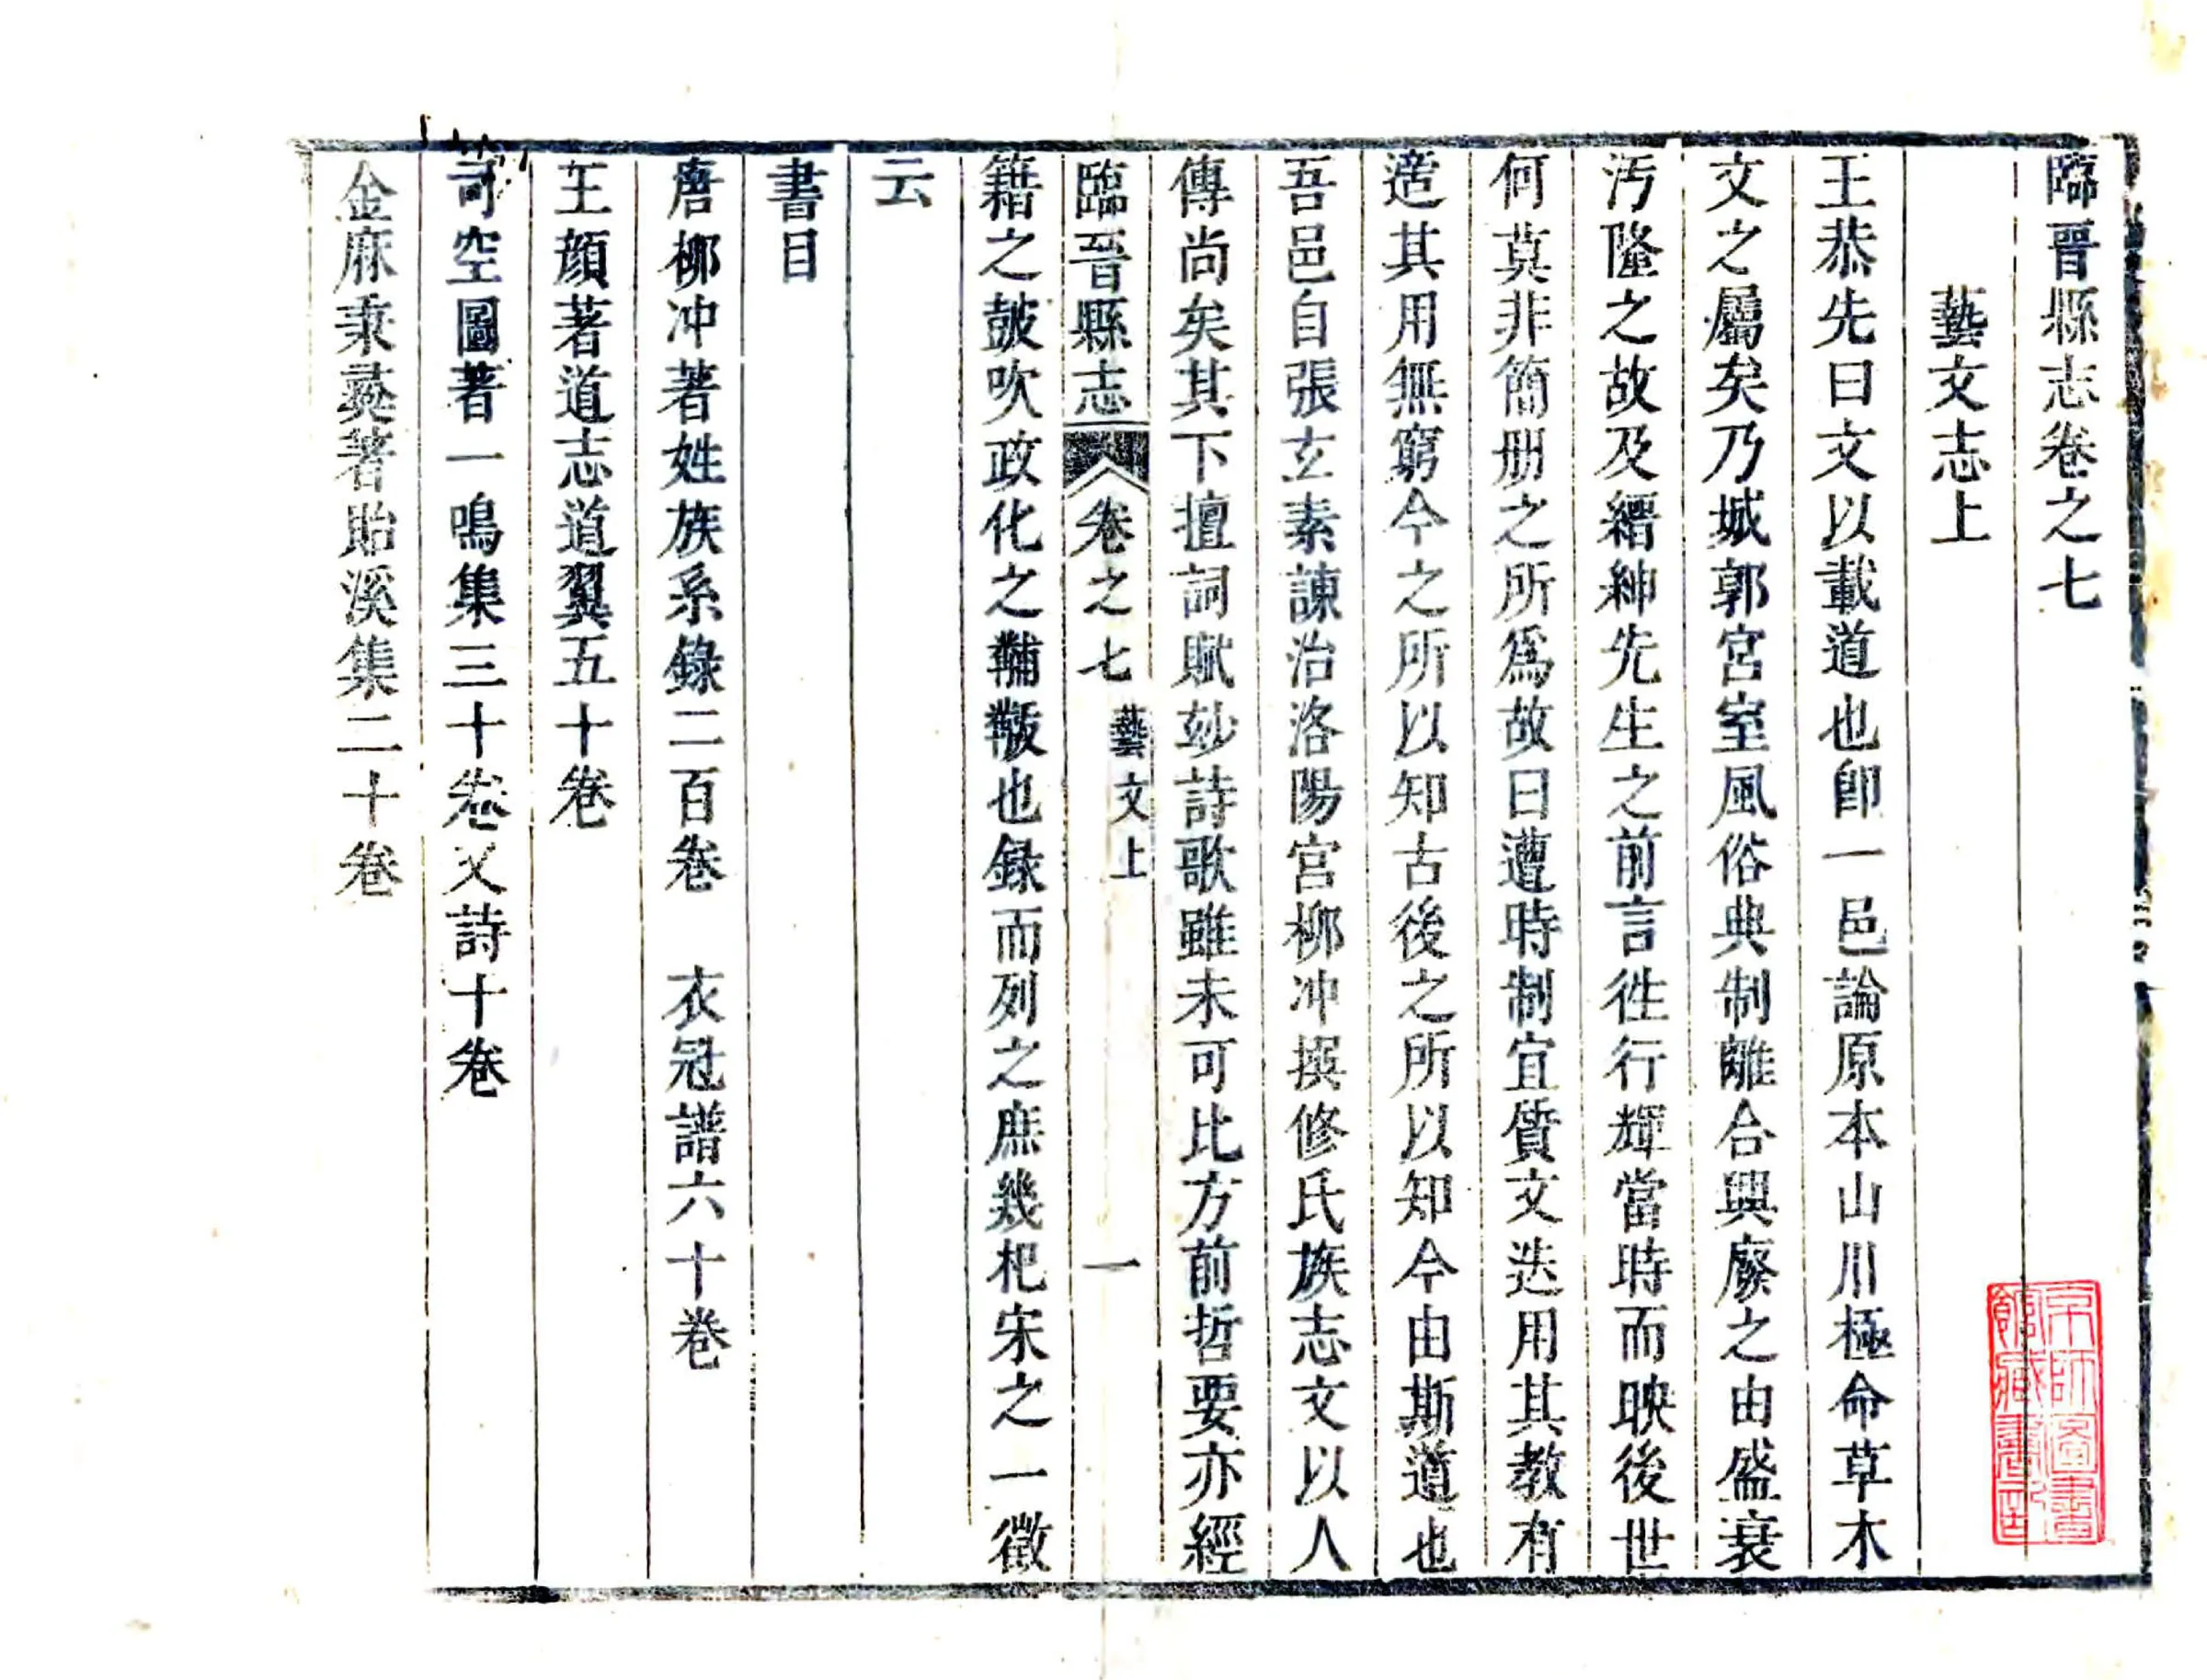 臨晉縣志卷之七
藝文志上
王恭先曰文以載道也卽一邑論原本山川極命草木
文之屬矣乃城郭宮室風俗典制離合興廢之由盛衰
汚隆之故及縉紳先生之前言徃行輝當時而映後世
何莫非簡册之所爲故曰遭時制宜質文迭用其敎有
適其用無窮今之所以知古後之所以知今由斯道也
吾邑自張玄素諫治洛陽宮柳冲撰修氏族志文以人
傳尚矣其下擅詞賦妙詩歌雖未可比方前哲要亦經
臨晉縣志 卷之七 藝文上 一
籍之皷吹政化之黼黻也錄而列之庶幾杞宋之一徵
云
書目
唐柳冲著姓族系錄二百卷 衣冠譜六十卷
王顏著道志道翼五十卷
司空圖著一鳴集三十卷又詩十卷
金麻秉彝著貽溪集二十卷
京師圖書
館藏書印